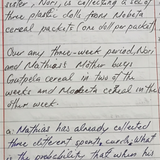 sister, Nori, is collecting a set of
three plastic dolls from Nobeta
cereal packets (one doll per packet).
Our any three-week period, Nori
and Mathias's Mother buys
Gutpela cereal in two of the
weeks and Mobeta cereal in the
other week.
a. Mathias has already collected
three different sports cards. What
is the probability that when his